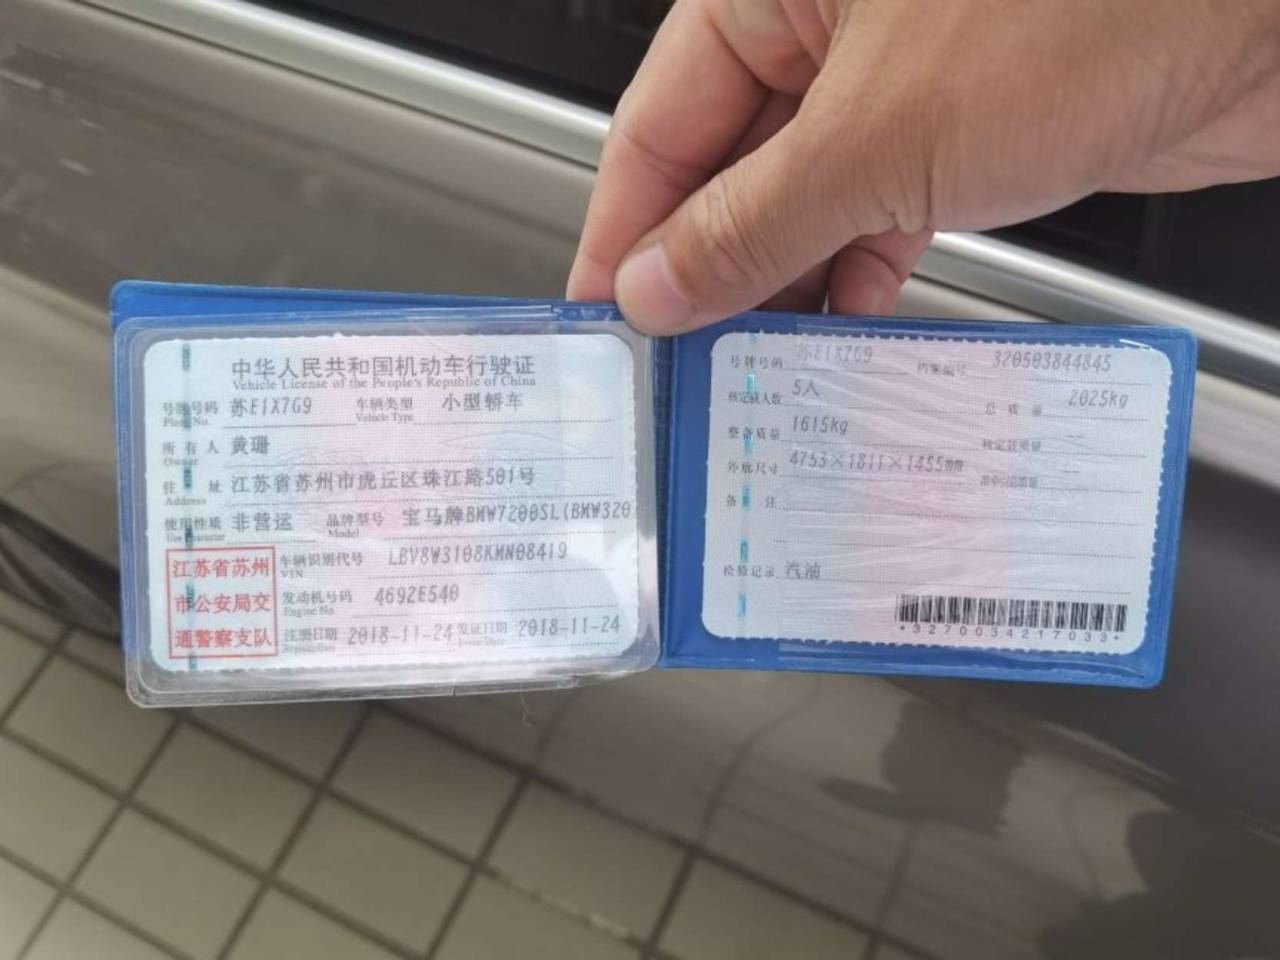 中华人民共和国机动车行驶证
Vehicle License of the People's Republic of China
号牌号码 苏E1X7G9 车辆类型 小型轿车
Plate No. Vehicle Type
所有人 黄珊
Owner
住址 江苏省苏州市虎丘区珠江路501号
Address
使用性质 非营运 品牌型号 宝马牌BMW7200SL(BMW320
Use Character Model
江苏省苏州
市公安局交
通警察支队
车辆识别代号 LBV8W3108KMN08419
VIN
发动机号码 4692E540
Engine No.
注册日期 2018-11-24 发证日期 2018-11-24
Register Date Issue Date
号牌号码 苏E1X7G9 档案编号 320503844845
核定载人数 5人 总质量 2025kg
整备质量 1615kg 核定载质量 --
外廓尺寸 4753×1811×1455mm 准牵引总质量 --
备注
检验记录 汽油
*3270034217033*